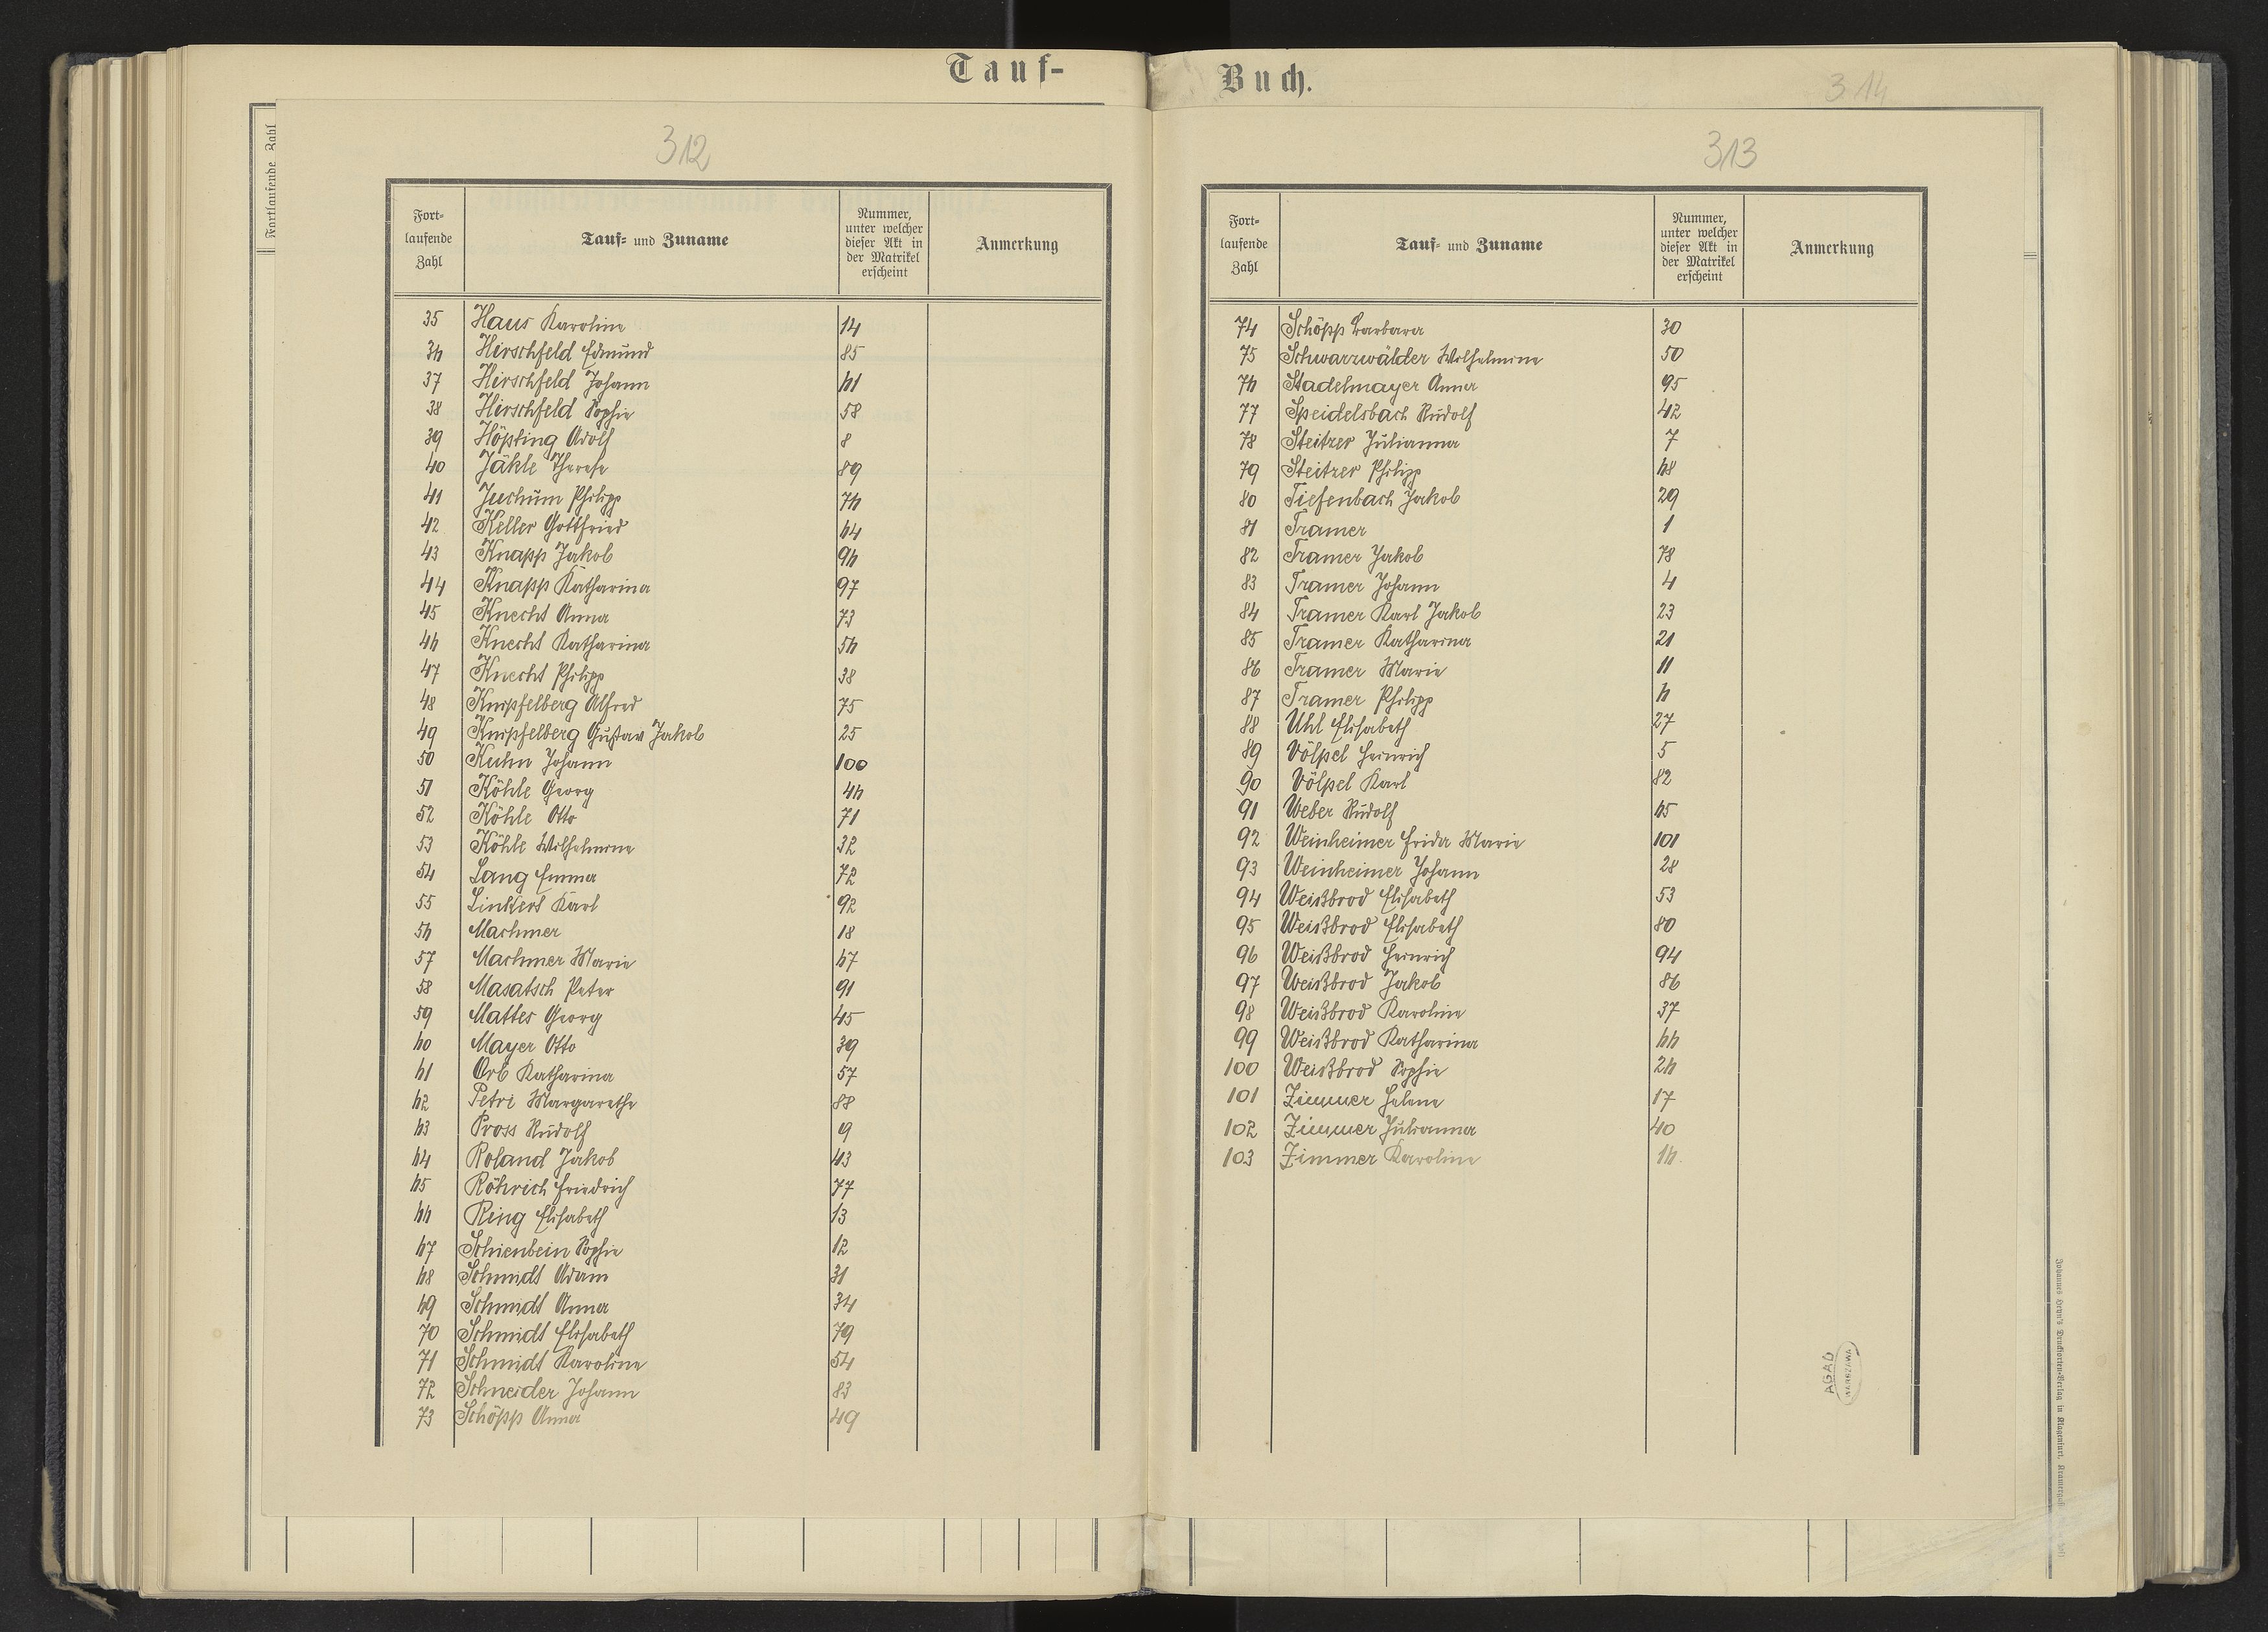 Tauf-
312
Fortlaufende Zahl
Fort-
laufende
Zahl
Tauf- und Zuname
Nummer,
unter welcher
dieser Akt in
der Matrikel
erscheint
Anmerkung
35 Haus Karoline 14
36 Hirschfeld Edmund 85
37 Hirschfeld Johann 61
38 Hirschfeld Sophie 58
39 Höpfing Adolf 8
40 Jäkle Therese 89
41 Juchum Philipp 76
42 Keller Gottfried 64
43 Knapp Jakob 96
44 Knapp Katharina 97
45 Knecht Anna 73
46 Knecht Katharina 56
47 Knecht Philipp 38
48 Knipfelberg Alfred 75
49 Knipfelberg Gustav Jakob 25
50 Kuhn Johann 100
51 Köhle Georg 46
52 Köhle Otto 71
53 Köhle Wilhelmine 32
54 Lang Emma 72
55 Linkert Karl 92
56 Machmer 18
57 Machmer Marie 67
58 Masatsch Peter 91
59 Mattes Georg 45
60 Mayer Otto 39
61 Orb Katharina 57
62 Petri Margarethe 88
63 Pross Rudolf 9
64 Roland Jakob 43
65 Röhrich Friedrich 77
66 Ring Elisabeth 13
67 Schienbein Sophie 12
68 Schmidt Adam 31
69 Schmidt Anna 34
70 Schmidt Elisabeth 79
71 Schmidt Karoline 54
72 Schneider Johann 83
73 Schöpp Anna 49
Buch.
314
313
Fort-
laufende
Zahl
Tauf- und Zuname
Nummer,
unter welcher
dieser Akt in
der Matrikel
erscheint
Anmerkung
74 Schöpp Barbara 30
75 Schwarzwälder Wilhelmine 50
76 Stadelmayer Anna 95
77 Speidelsbach Rudolf 42
78 Steitzer Julianna 7
79 Steitzer Philipp 68
80 Tiefenbach Jakob 29
81 Tramer 1
82 Tramer Jakob 78
83 Tramer Johann 4
84 Tramer Karl Jakob 23
85 Tramer Katharina 21
86 Tramer Marie 11
87 Tramer Philipp 6
88 Uhl Elisabeth 27
89 Völpel Heinrich 5
90 Völpel Karl 82
91 Weber Rudolf 65
92 Weinheimer Frida Marie 101
93 Weinheimer Johann 28
94 Weißbrod Elisabeth 53
95 Weißbrod Elisabeth 80
96 Weißbrod Heinrich 94
97 Weißbrod Jakob 86
98 Weißbrod Karoline 37
99 Weißbrod Katharina 66
100 Weißbrod Sophie 26
101 Zimmer Helene 17
102 Zimmer Julianna 40
103 Zimmer Karoline 16
AGAD
WARSZAWA